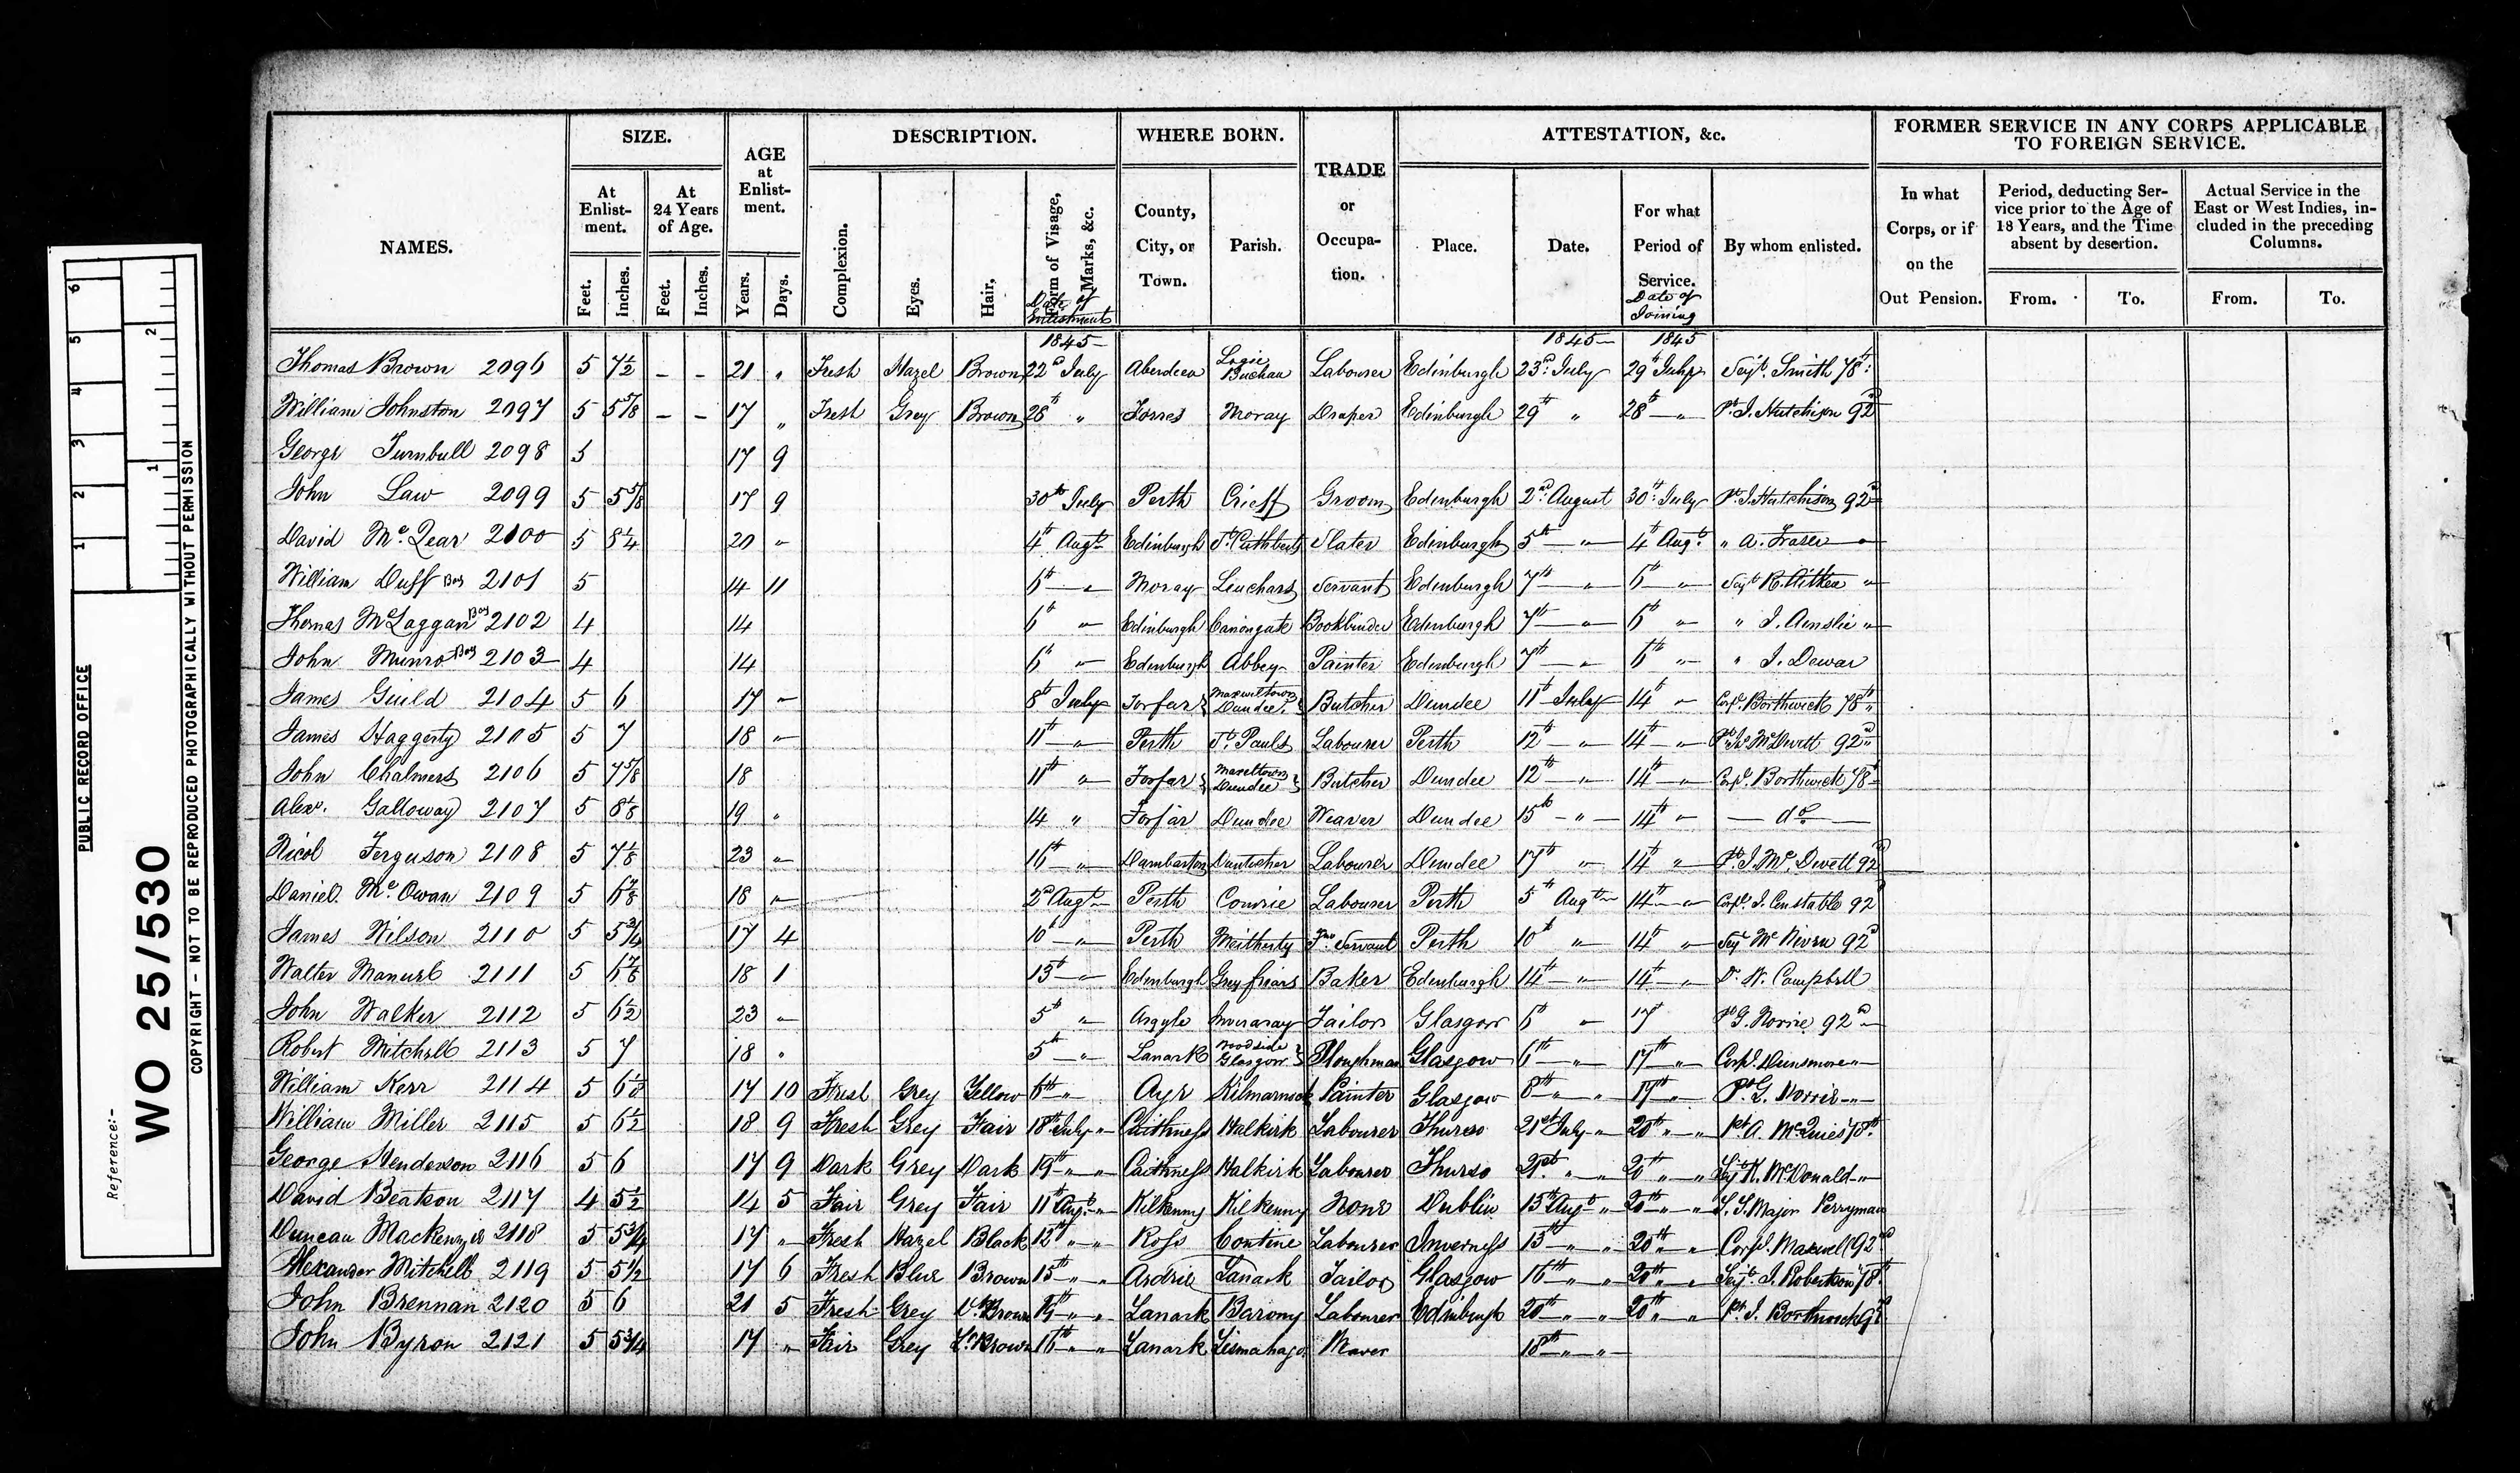 NAMES.
SIZE.
At Enlistment.
Feet.
Inches.
At 24 Years of Age.
Feet.
Inches.
AGE at Enlistment.
Years.
Days.
DESCRIPTION.
Complexion.
Eyes.
Hair,
Form of Visage, Marks, &c.
Date of Enlistment
WHERE BORN.
County, City, or Town.
Parish.
TRADE or Occupation.
ATTESTATION, &c.
Place.
Date.
For what Period of Service.
Date of Joining
By whom enlisted.
FORMER SERVICE IN ANY CORPS APPLICABLE TO FOREIGN SERVICE.
In what Corps, or if on the Out Pension.
Period, deducting Service prior to the Age of 18 Years, and the Time absent by desertion.
From.
To.
Actual Service in the East or West Indies, included in the preceding Columns.
From.
To.
1845 1845 1845
Thomas Brown 2096 5 7½ - - 21 " Fresh Hazel Brown 22d July Aberdeen Logie Buchan Labourer Edinburgh 23d July 29th July Serjt. Smith 78th
William Johnston 2097 5 5⅝ - - 17 " Fresh Grey Brown 28th " Forres Moray Draper Edinburgh 29th " 28th " Pt. J. Hutchison 92d
George Turnbull 2098 5 17 9
John Law 2099 5 5⅝ 17 9 30th July Perth Crieff Groom Edinburgh 2nd August 30th July Pt. J. Hutchison 92d
David Mc.Lear 2100 5 8¼ 20 " 4th Augt Edinburgh St. Cuthberts Slater Edinburgh 5th " 4th Augt. " A. Fraser "
William Duff Boy 2101 5 14 11 6th " Moray Leuchars Servant Edinburgh 7th " 6th " Serjt R. Aitken "
Thomas McLaggan Boy 2102 4 14 6th " Edinburgh Canongate Bookbinder Edinburgh 7th " 6th " " J. Ainslie "
John Munro Boy 2103 4 14 6th " Edinburgh Abbey Painter Edinburgh 7th " 6th " " J. Dewar
James Guild 2104 5 6 17 " 8th July Forfar Maxwelltown Dundee Butcher Dundee 11th July 14th " Corpl. Borthwick 78th
James Haggerty 2105 5 7 18 " 11th " Perth St. Pauls Labourer Perth 12th " 14th " Pt. Jas McDevett 92d
John Chalmers 2106 5 7⅝ 18 11th " Forfar Maxeltown Dundee Butcher Dundee 12th " 14th " Corpl. Borthwick 78th
Alexr. Galloway 2107 5 8⅛ 19 " 14 " Forfar Dundee Weaver Dundee 15th " 14th " do
Nicol Ferguson 2108 5 7⅛ 23 " 16th " Dumbarton Duntocher Labourer Dundee 17th " 14th " Pt. J. Mc.Devett 92d
Daniel Mc.Owan 2109 5 6⅞ 18 " 2d Augt Perth Comrie Labourer Perth 5th Augt 14th " Corpl. J. Constable 92
James Wilson 2110 5 5¾ 17 4 10th " Perth Servant Perth 10th " 14th " Serjt McNiven 92d
Walter 2111 5 6⅞ 18 1 13th " Edinburgh Grey friars Baker Edinburgh 14th " 14th " W. Campbell
John Walker 2112 5 6½ 23 " 5th " Argyle Inveraray Tailor Glasgow 6th " 17th Pt G. Norrie 92d
Robert Mitchell 2113 5 7 18 " 5th " Lanark Woodside Glasgow Ploughman Glasgow 6th " 17th " Corpl. Dunsmore "
William Kerr 2114 5 6⅛ 17 10 Fresh Grey Yellow 6th " Ayr Kilmarnock Painter Glasgow 8th " " 17th " Pt. G. Norrie "
William Miller 2115 5 6½ 18 9 Fresh Grey Fair 18th July " Caithness Halkirk Labourer Thurso 21st July " 20th " " Pt A. 78th
George Henderson 2116 5 6 17 9 Dark Grey Dark 19th " " Caithness Halkirk Labourer Thurso 21st " " 20th " " Serjt K. McDonald "
David Beatson 2117 4 5½ 14 5 Fair Grey Fair 11th Augt " Kilkenny Kilkenny None Dublin 13th Augt " 20th " " Major Perryman
Duncan Mackenzie 2118 5 5¾ 17 " Fresh Hazel Black 12th " " Ross Contine Labourer Inverness 13th " " 20th " " Corpl. Maxwell 92nd
Alexander Mitchell 2119 5 5½ 17 6 Fresh Blue Brown 15th " " Ardrie Lanark Tailor Glasgow 16th " " 20th " " Serjt. J. Robertson 78th
John Brennan 2120 5 6 21 5 Fresh Grey Brown 19th " " Lanark Barony Labourer Edinburgh 20th " " 20th " " Pt. J. Borthwick 92d
John Byron 2121 5 5¾ 17 " Fair Grey Lt. Brown 16th " " Lanark Lismahago Weaver 18th " "
PUBLIC RECORD OFFICE
1 2 3 4 5 6
1 2
Reference:-
WO 25/530
COPYRIGHT - NOT TO BE REPRODUCED PHOTOGRAPHICALLY WITHOUT PERMISSION